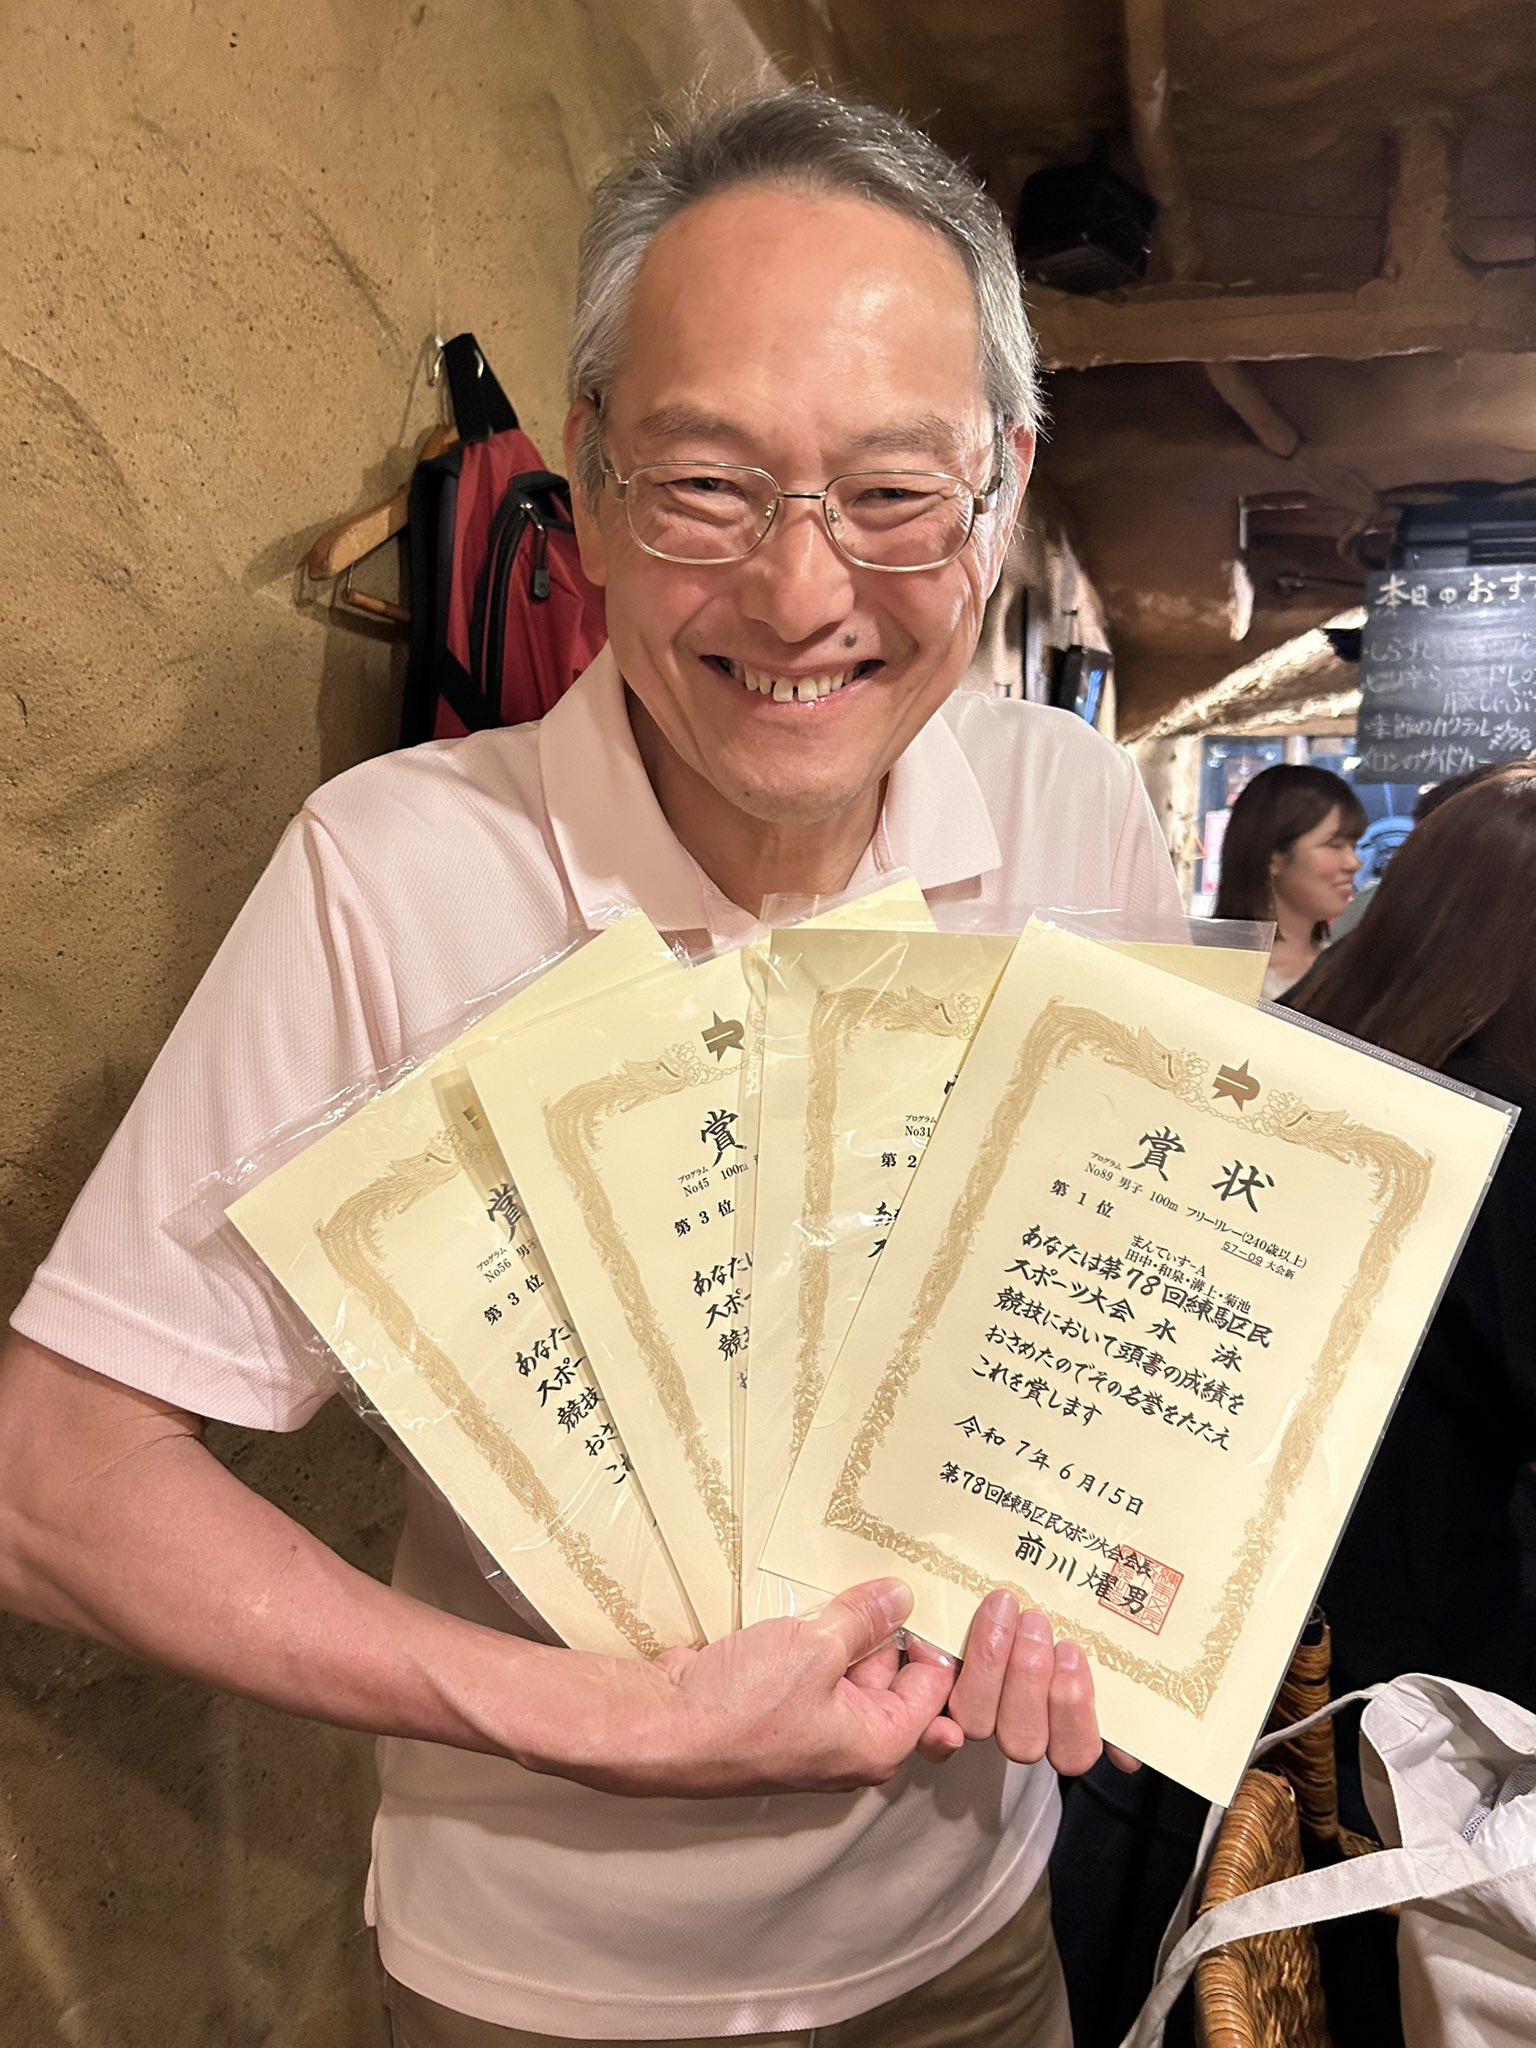 本日のおす
しらす
季節のカクテル
賞
プログラム
No56 男子
第 3 位
あなた
スポー
競技
おさ
こ
賞
プログラム
No45 100m
第 3 位
あなた
スポー
競
プログラム
No31
第 2
賞 状
プログラム
No89 男子 100m フリーリレー(240歳以上)
第 1 位
57-09 大会新
まんてぃす-A
田中・和泉・溝上・菊池
あなたは第78回練馬区民
スポーツ大会 水 泳
競技において頭書の成績を
おさめたのでその名誉をたたえ
これを賞します
令和 7年 6月15日
第78回練馬区民スポーツ大会会長
前川燿男